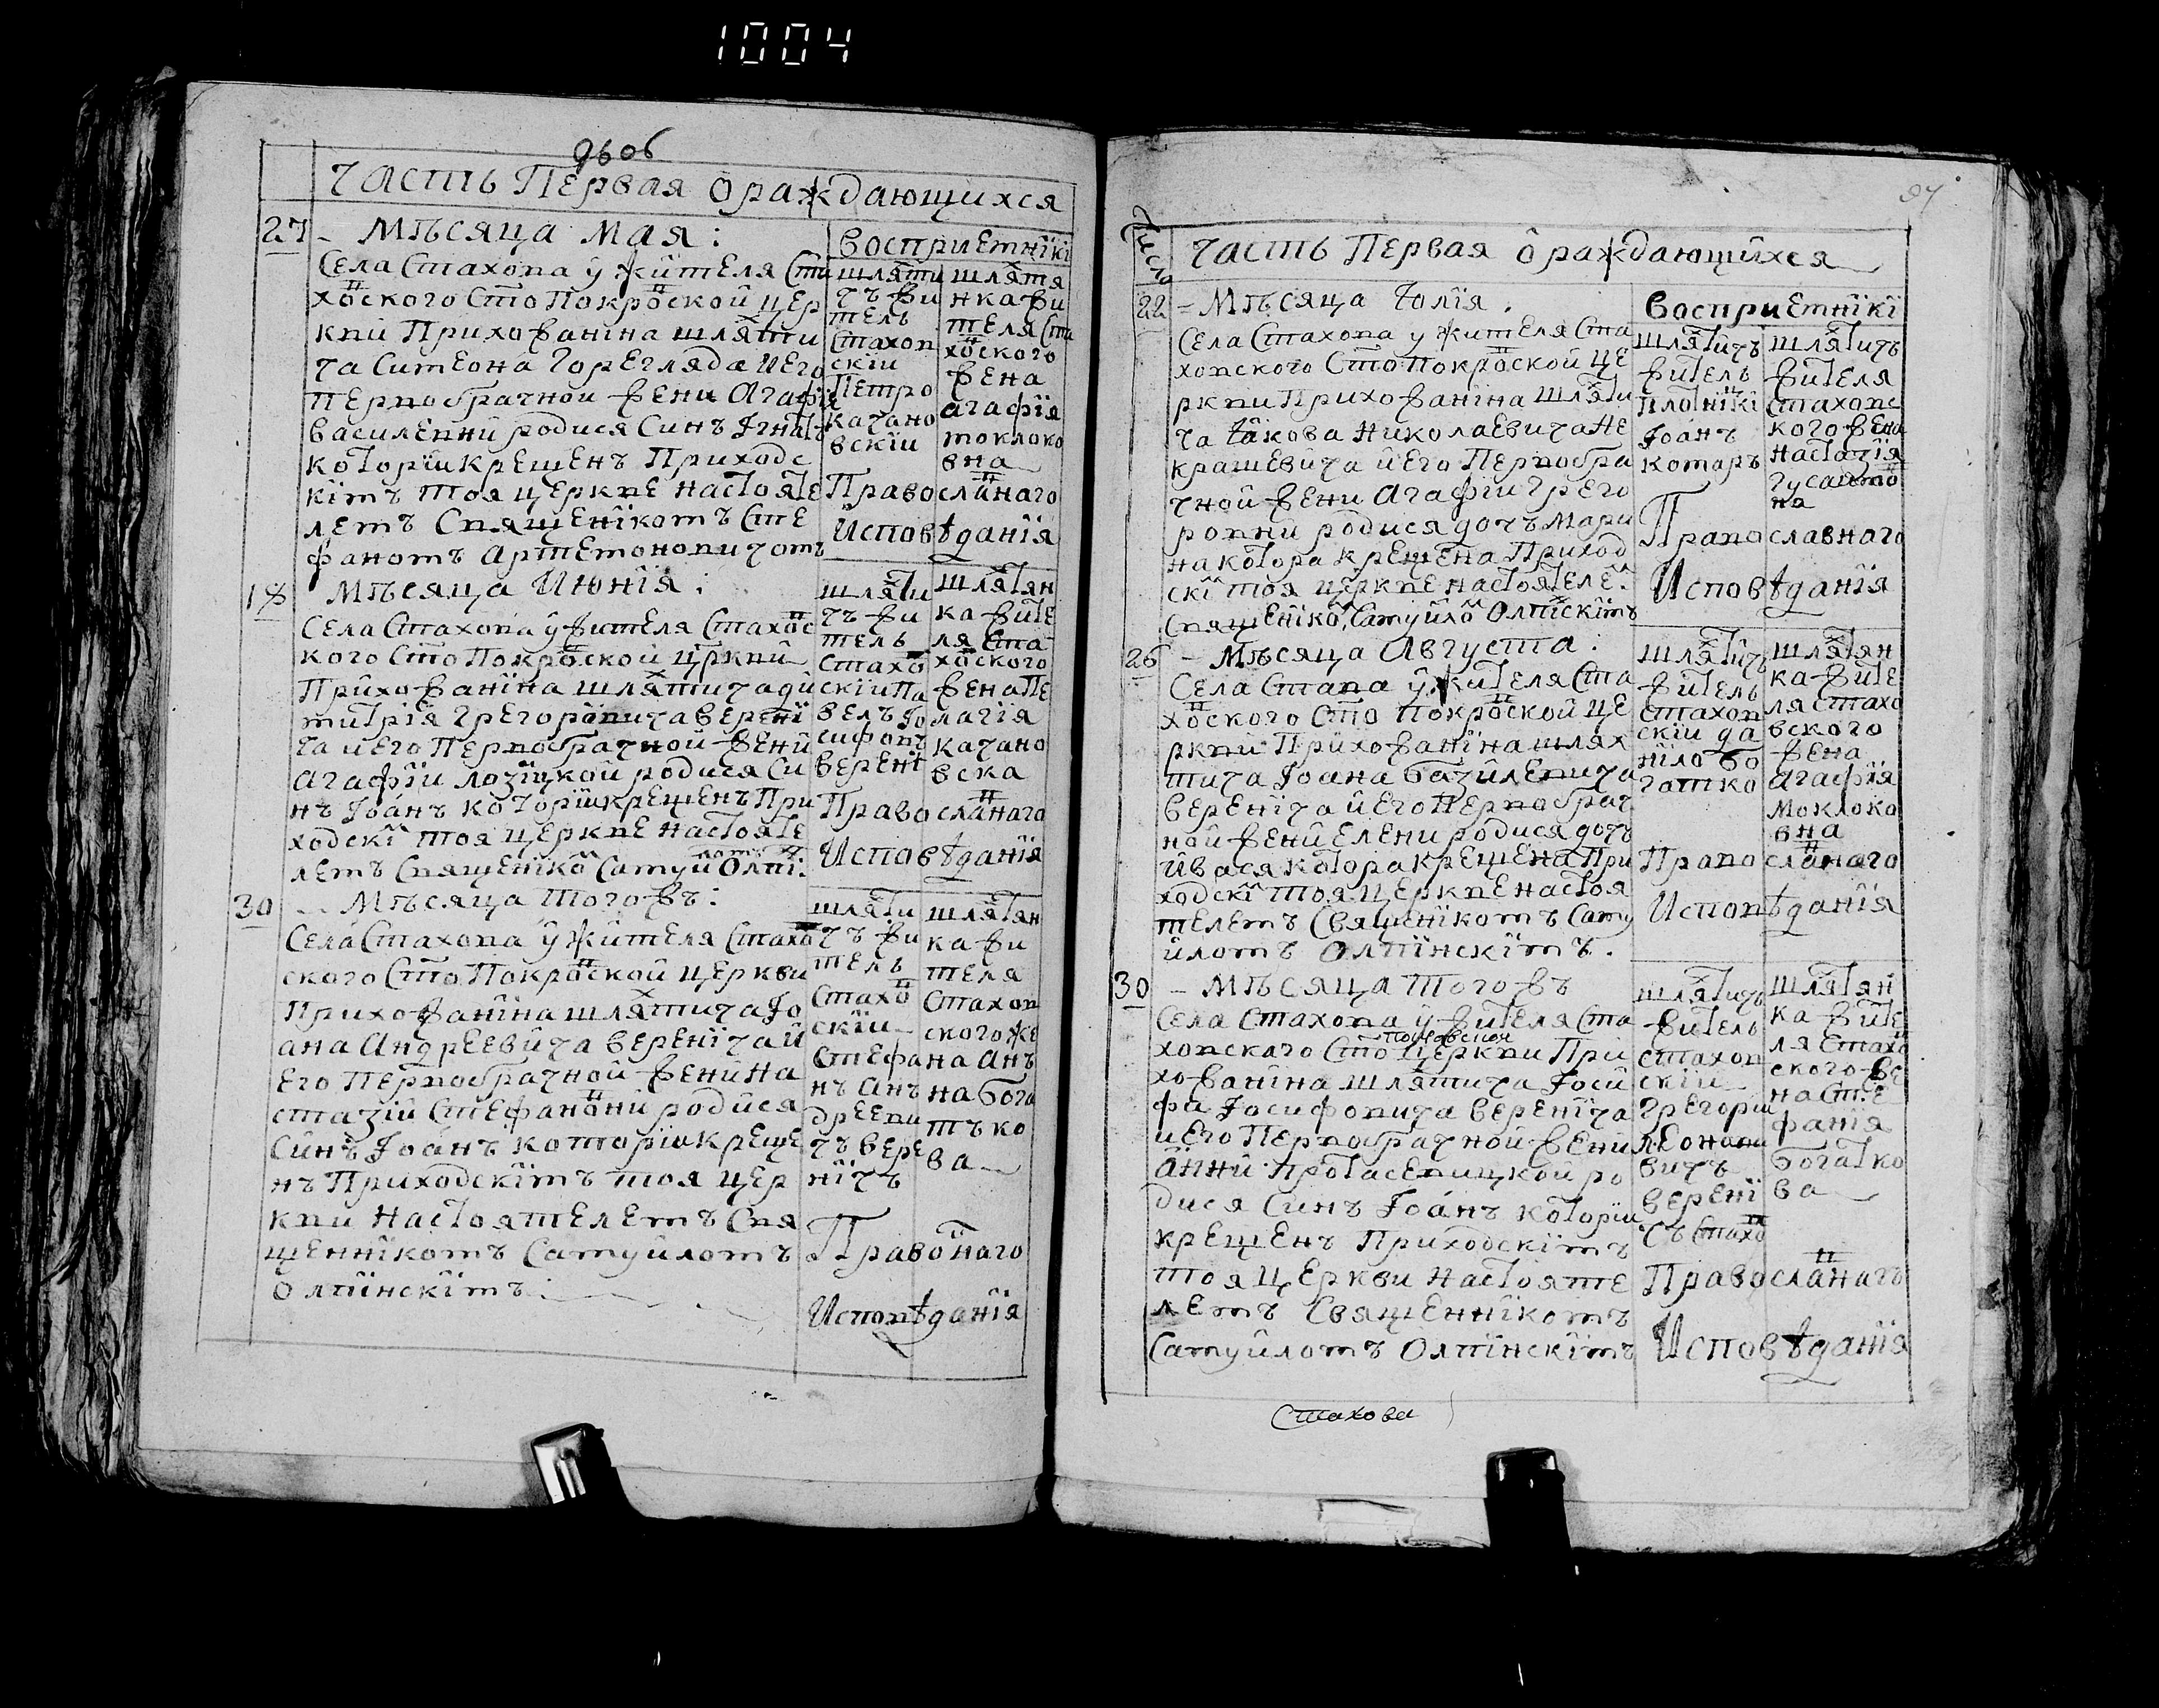 1004
9606
Часть Первая о раждающихся
27 - Мѣсяца Мая:
воспрИЕтнїкї
Села Стахова у жителя Ста
ховского Сто Покровской цер
кви Прихожанїна шляхти
ча Симеона Горегляда и его
первобрачной жени Агафїи
василевни родися Синъ Їгнатъ
которїи крещенъ Приходс
кїмъ тоя церкве настояте
лемъ Священїкомъ Сте
фаномъ Артемоновичомъ
шляхти
чъ жи
тель
Стахов
скїи
Петро
качано
вскїи
шляхтя
нка жи
теля Ста
ховского
жена
агафїя
моклоко
вна
Православнаго
Исповѣданїя
18 Мѣсяца Июнїя:
Села Стахова у жителя Стаховс
кого Сто Покровской црквй
Прихожанїна шляхтича ди
митрїя Грегоровича веренї
ча и его первобрачной жени
Агафїи лозїцкой родися Си
нъ Їоанъ которїи крещенъ При
ходскї тоя церкве настояте
лемъ Священїко Самуй Олпї:
шляхти
чъ жи
тель
Стахо
скїи Па
велъ Їо
сифовъ
веренї
шляхтян
ка жите
ля Ста
ховского
жена Пе
лагїя
качано
вска
Православнаго
Исповѣданїя
30 - Мѣсяца Того жъ:
Села Стахова у жителя Стахо
ского Сто Покровской церкви
Прихожанїна шляхтича Їо
ана Андреевича веренїча й
его первобрачной жени на
стазїй Стефановни родися
Синъ Їоанъ которїи креще
нъ Приходскїмъ тоя цер
кви настоятелемъ Свя
щеннїкомъ Самуйломъ
Олпїнскїмъ
шляхти
чъ жи
тель
Стахов
скїи
Стефа
нъ Анъ
дрееви
чъ вере
нїчъ
шляхтян
ка жи
теля
Стахов
ского же
на Анъ
на бога
тъко
ва
Правовнаго
Исповѣданїя
97
Число
Часть Первая о раждающихся
22 - Мѣсяца Їолїя:
воспрИЕтнїкї
Села Стахова у жителя Ста
ховского Сто Покровской це
ркви Прихожанїна шляхти
ча Їакова Николаевича Не
крашевича й его первобра
чной жени Агафїи Грего
ровни родися дочъ Мари
на котора крещена Приход
скї тоя церкве настоятеле
Священїко Самуйло Олпїскїмъ
шляхтичъ
житель
Плотнїкї
Їоанъ
комаръ
шляхтичъ
жителя
Стаховс
кого жена
настазїя
на
Православнаго
Исповѣданїя
26 - Мѣсяца Августа:
Села Става у жителя Ста
ховского Сто Покровской це
ркви Прихожанїна шлях
тича Їоана базилевича
веренїча й его первобрач
ной жени Елени родися дочъ
Йвася котора крещена При
ходскї тоя церкве настоя
телемъ Священїкомъ Саму
йломъ Олпїнскїмъ.
шляхтичъ
житель
Стахов
скїи да
нїло бо
гатко
шляхтян
ка жите
ля Стахо
вского
жена
Агафїя
Моклоко
вна
Православнаго
Исповѣданїя
30 - Мѣсяца Того жъ
Села Стахова у жителя Ста
ховскаго Сто церкви При
покровской
хожанїна шляхтича Їоси
фа Їосифовича веренїча
и его первобрачной жени
анни протасевицкой ро
дися Синъ Їоанъ которїи
крещенъ Приходскїмъ
тоя церкви настояте
лемъ Священнїкомъ
Самуйломъ Олпїнскїмъ
шляхтичъ
житель
Стахов
скїи
Грегорїи
леонови
вичъ
веренї
чъ Стахо
шляхтян
ка жите
ля Стахо
ского же
на Сте
фанїя
богатко
ва
Православнагъ
Исповѣданїя
Стахова